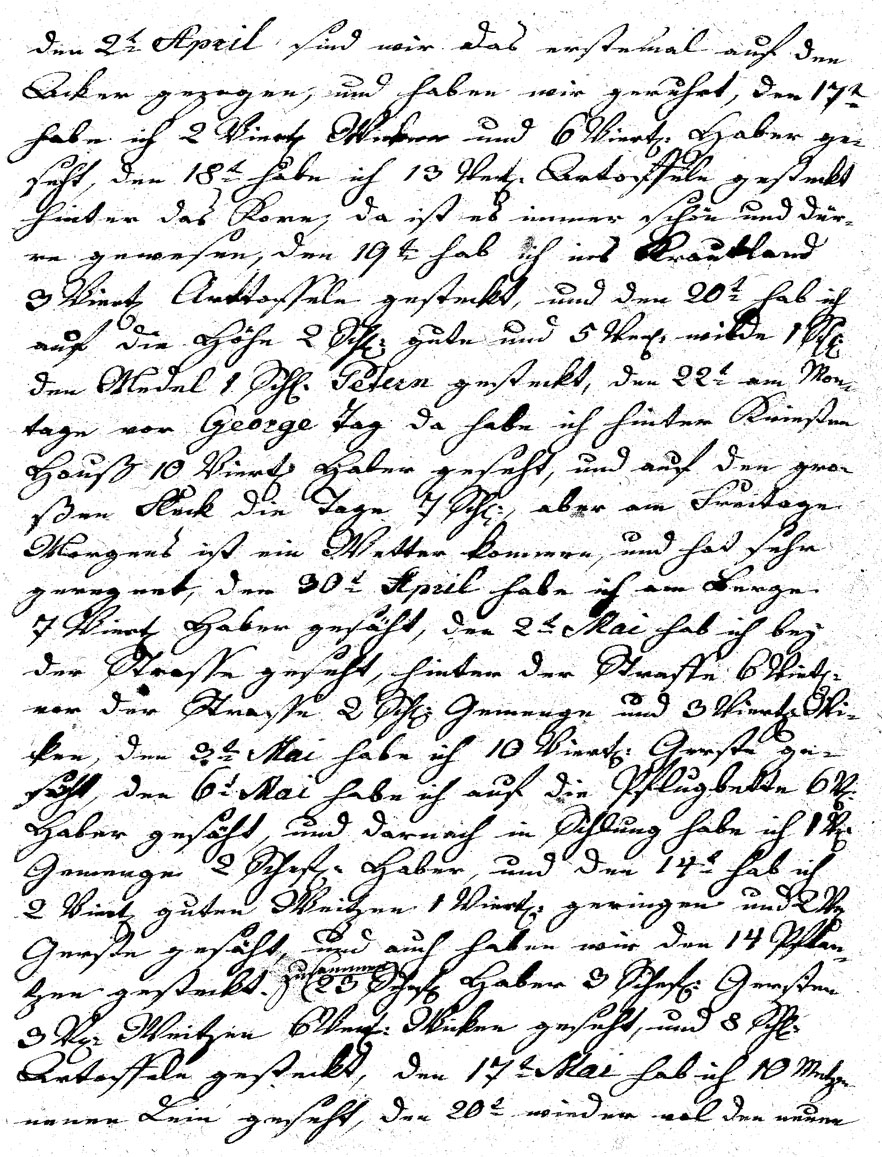 den 2t April sind wir das erstemal auf den
Acker gezogen, und haben wir geruhrt, den 17t
habe ich 2 Viert Wicken und 6 Viert: Haber ge-
seht, den 18t habe ich 13 Vert: Artoffeln gesteckt
hinter das Korn, da ist es immer schön und dür-
re gewesen, den 19t hab ich ins Krautland
3 Viert Arttoffeln gesteckt, und den 20t hab ich
auf die Höhe 2 Schl: gute und 5 Vert: wilde 1 Schl:
den Medel 1 Schl: gesteckt, den 22t am Mon-
tage vor George Tag da habe ich hinter
Hauß 10 Viert: Haber geseht, und auf den gro-
ßen Fleck die Tage 7 Schl:, aber am Freitage
Morgens ist ein Wetter kommen, und hat sehr
geregnet, den 30t April habe ich am Berge
7 Viert Haber gesäht, den 2t Mai hab ich bey
der Strasse geseht, hinter der Strasse 6 Viert:
vor der Strasse 2 Schl: Gemenge und 3 Viert: Wi-
cken, den 3t Mai habe ich 10 Viert: Gerste ge-
säht, den 6t Mai habe ich auf die Pflugbette 6 V:
Haber gesäht, und darnach in Schlung habe ich 1 Vi:
Gemenge 2 Schef: Haber, und den 14t hab ich
2 Viert guten Weitzen 1 Viert: geringen und 2 Ve
Gerste gesäht, und auch haben wir den 14 Pflan-
tzen gesteckt. zusammen (23 Schef: Haber 3 Schef: Gersten
3 Vi: Weitzen 6 Vert: Wicken geseht, und 8 Schl:
Artoffeln gesteckt, den 17t Mai hab ich 10 Metzen
neuen Lein geseht, den 20t wieder vol den neuen